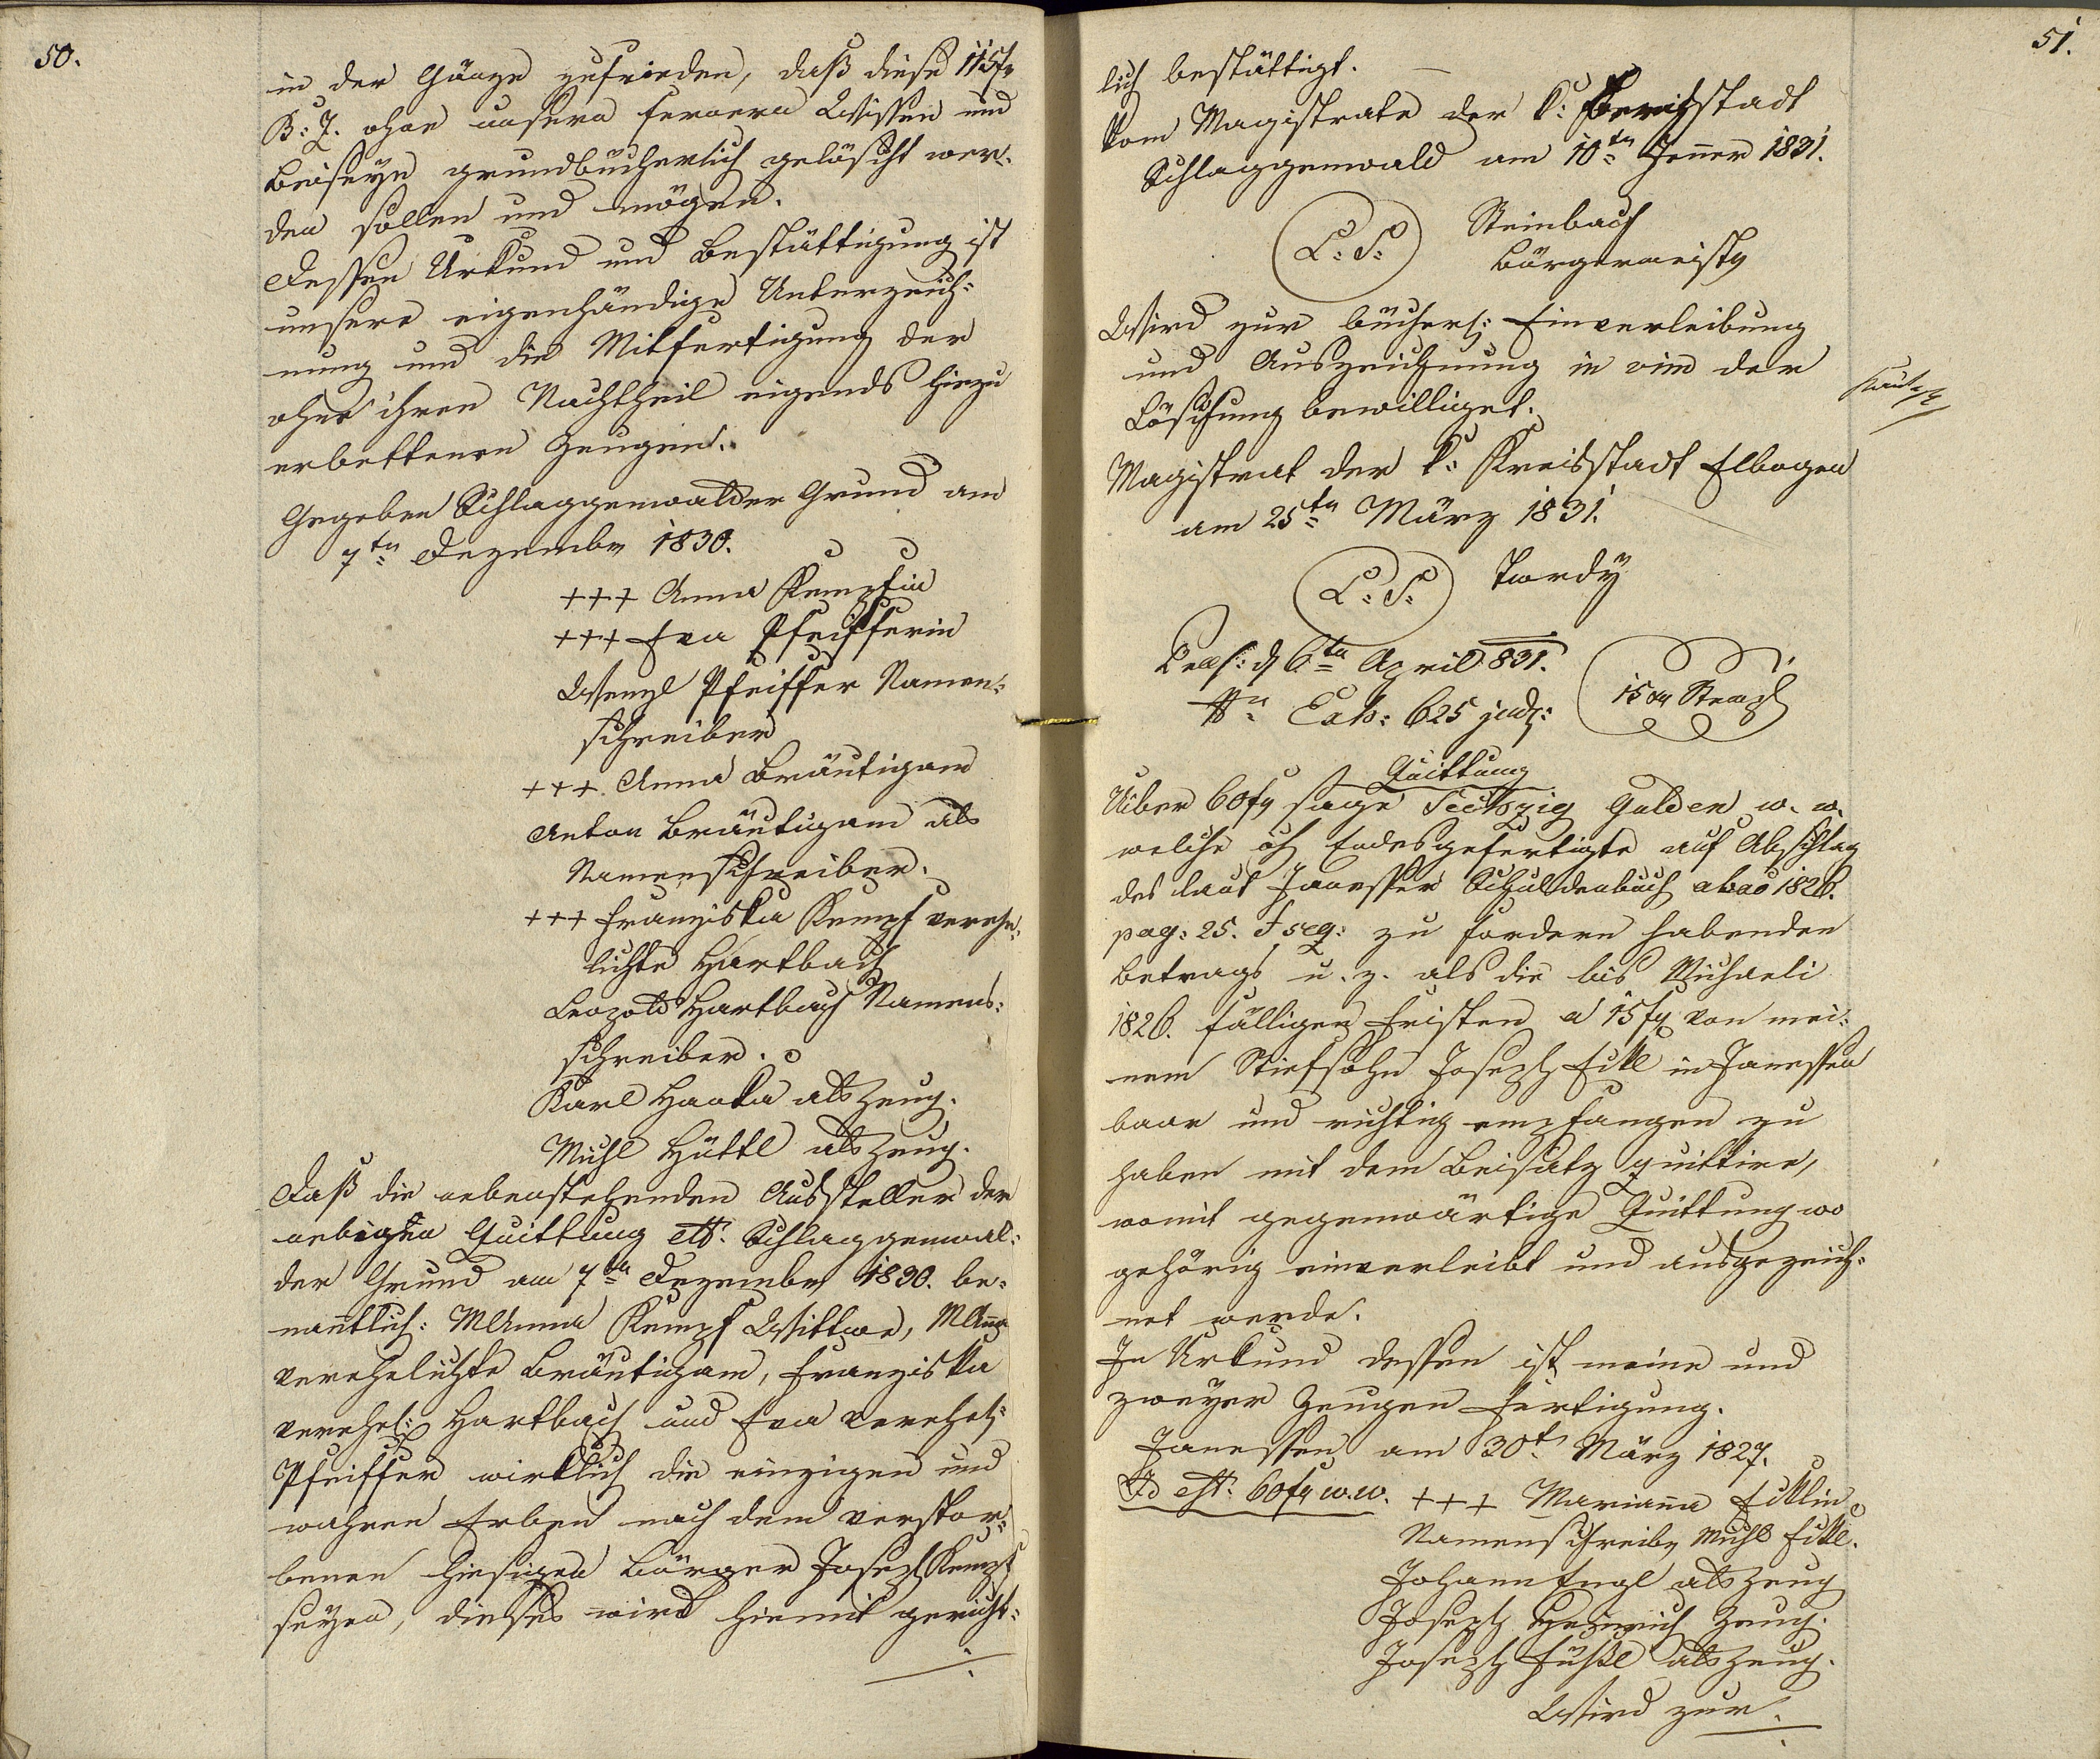 50.
in der Gänze zufrieden, daß diese 115 f
B: Z. ohne unsern fernern Wissen und
Beiseyn grundbücherlich gelöscht wer-
den sollen und mögen.
Dessen Urkund und Bestättigung ist
unsere eigenhändige Unterzeich-
nung und die Mitfertigung der
ohne ihren Nachtheil eigends hiezu
erbettenen Zeugen.
Gegeben Schlaggenwalder Grund am
7tn Dezember 1830.
+++ Anna Kempfin
+++ Eva Pfeifferin
Wenzl Pfeiffer Namen-
schreiber
+++ Anna Bräutigam
Anton Bräutigam als
Namenschreiber.
+++ Franziska Kempf verehe-
lichte Hartbach
Leopold Hartbach Namens-
schreiber.
Karl Hanka als Zeug.
Michl Hüttl als Zeug.
Daß die nebenstehenden Aussteller der
obigen Quittung ddto. Schlaggenwal-
der Grund am 7tn Dezember 1830. be-
nanntlich: MAnna Kempf Wittwe, MAnna
verehelichte Bräutigam, Franziska
verehel: Hartbach und Eva verehel:
Pfeiffer wirklich die einzigen und
wahren Erben nach dem verstor-
benen hiesigen Bürger Joseph Kempf
seyen, dieses wird hiemit gericht-
51.
lich bestättigt.
Vom Magistrate der k: Bergstadt
Schlaggenwald am 10tn Jenner 1831.
L: S: Steinbach
Bürgermeister
Wird zur bücherl: Einverleibung
und Auszeichnung in vim der
Löschung bewilliget.
Magistrat der k: Kreisstadt Elbogen
am 25tn März 1831.
L: S: Tardy
Praes: d 6tn April 831.
Nr Exh: 625 judz:
15 xr Stempl
Quittung
Uiber 60 fr sage Sechszig Gulden w. w.
welche ich Endesgefertigte auf Abschlag
des laut Janesser Schuldenbuch ab ao 1826.
pag: 25. & seq: zu fordern habenden
Betrags u. z. als die bis Michaeli
1826. fälligen Fristen a 15 fr von mei-
nem Stiefsohn Joseph Fickl in Janessen
baar und richtig empfangen zu
haben mit dem Beisatz quittire,
womit gegenwärtige Quittung wo
gehörig einverleibt und ausgezeich-
net werde.
In Urkund dessen ist meine und
zweyer Zeugen Fertigung.
Janessen am 30t März 1827.
Id est: 60 fr w.w. +++ Marianna Ficklin
Namenschreiber Michl Fickl.
Johann Engl als Zeug
Joseph Heinrich Zeug.
Joseph Füssl als Zeug.
Wird zur